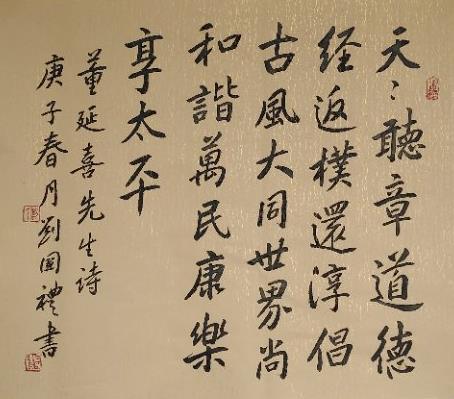 天〻聽章道德
经返樸還淳倡
古風大同世界尚
和諧萬民康樂
享太平
董延喜先生詩
庚子春月劉国禮書